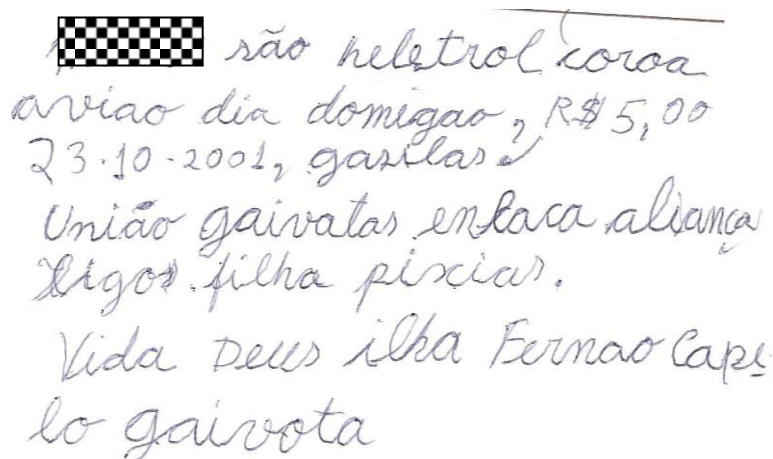 são heletrol coroa
aviao dia domigao, R$ 5,00
23.10.2001, gazelas
União gaivatas enlaca aliança
filha pixias.
Vida Deus ilha Fernao Cape
lo gaivota